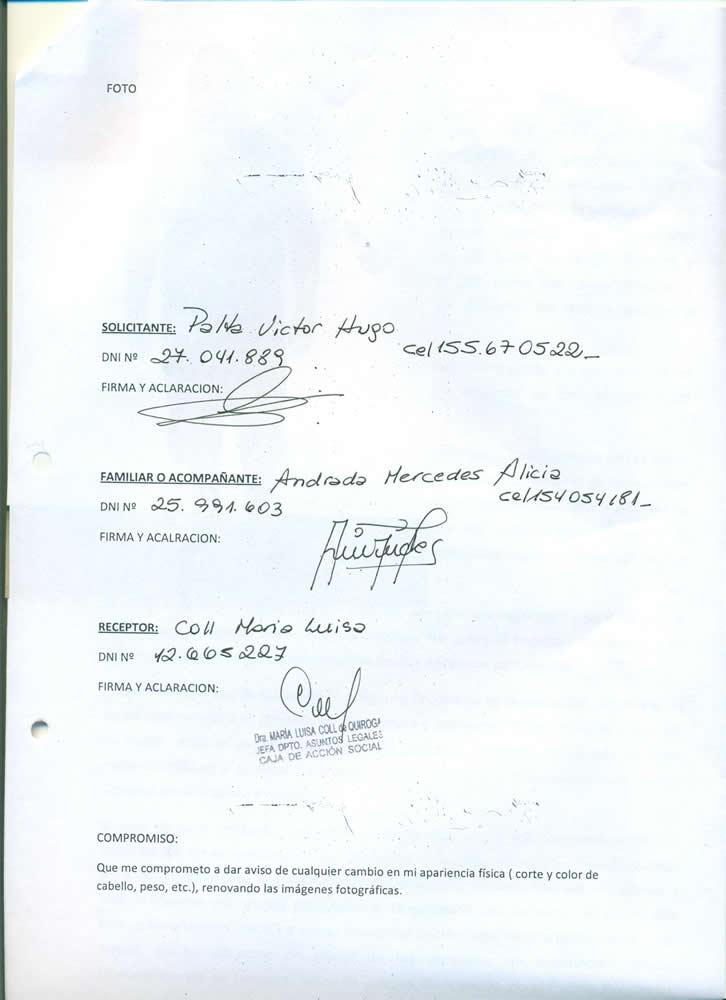 FOTO
SOLICITANTE: Palta Victor Hugo
DNI Nº 27.041.889
cel 155.670522_
FIRMA Y ACLARACION:
FAMILIAR O ACOMPAÑANTE: Andrada Mercedes Alicia
cel 154054181_
DNI Nº 25.991.603
FIRMA Y ACALRACION:
RECEPTOR: Coll Maria Luisa
DNI Nº 12.665227
FIRMA Y ACLARACION:
Coll
Dra. MARÍA LUISA COLL de QUIROGA
JEFA DPTO. ASUNTOS LEGALES
CAJA DE ACCIÓN SOCIAL
COMPROMISO:
Que me comprometo a dar aviso de cualquier cambio en mi apariencia física ( corte y color de
cabello, peso, etc.), renovando las imágenes fotográficas.